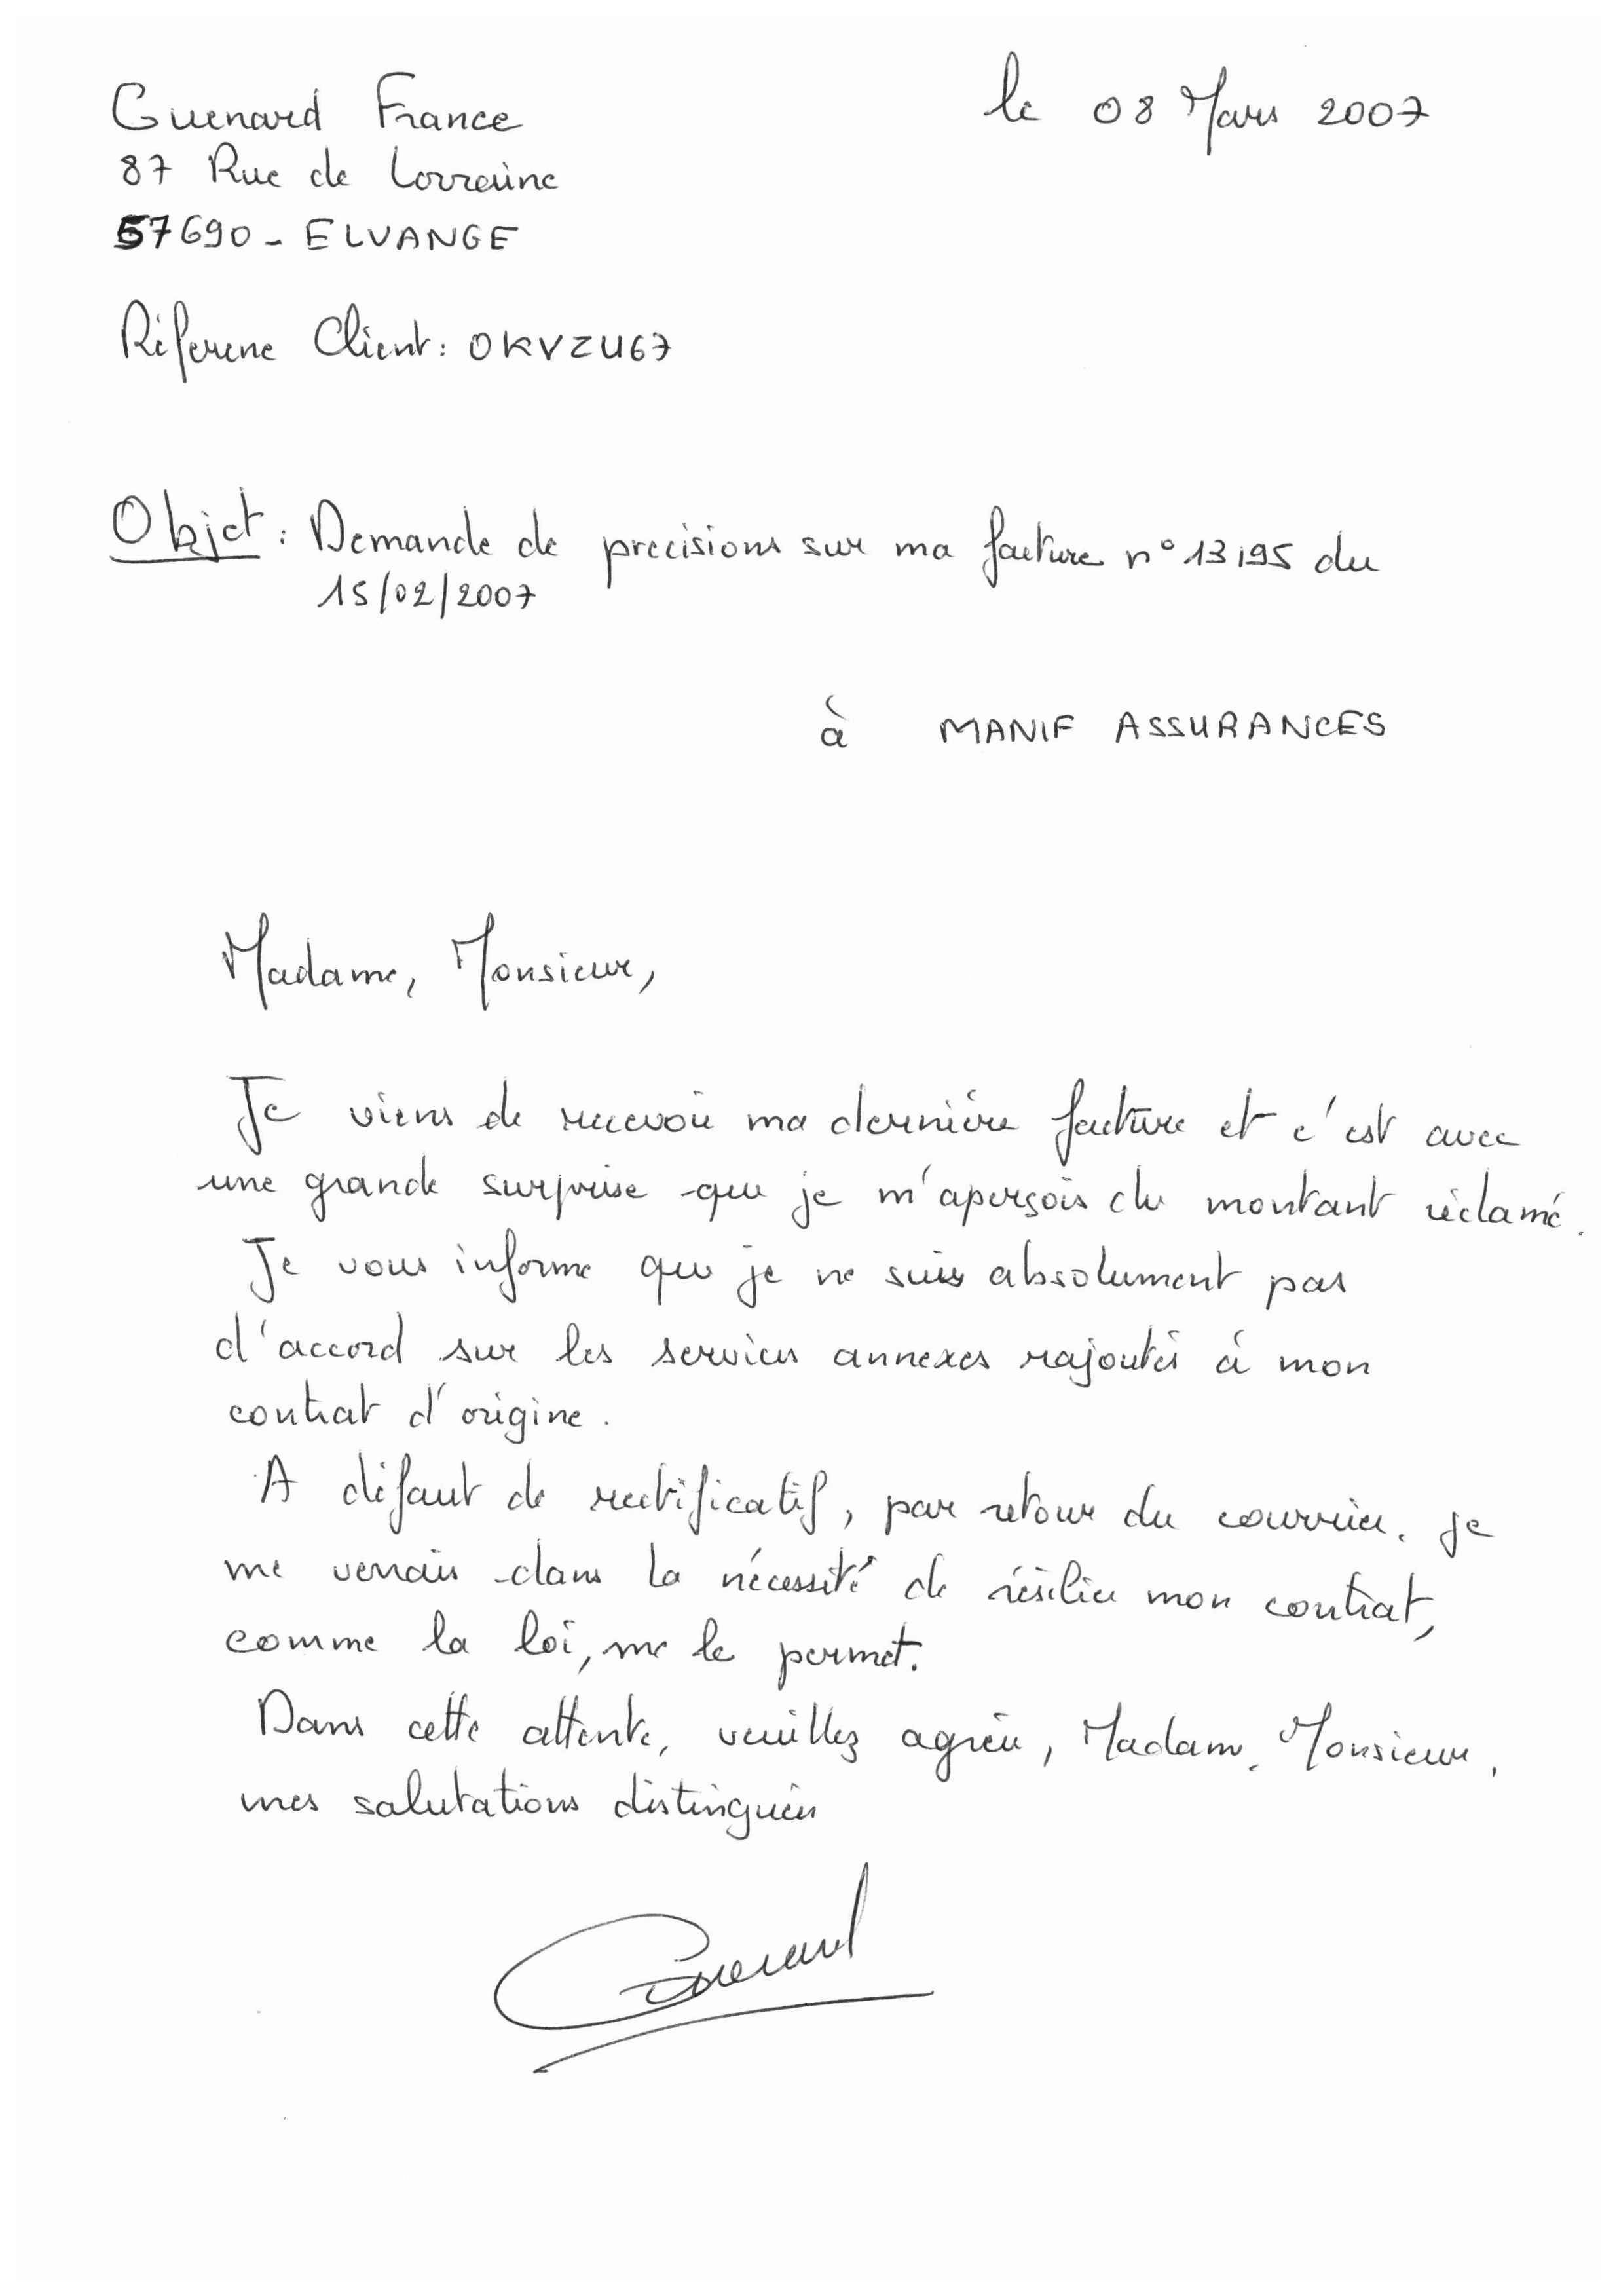 Guenard France
le 08 Mars 2007
87 Rue de Lorraine
57690 - ELVANGE
Réference Client : OKVZU67
Objet : Demande de precisions sur ma facture n° 13195 du
15/02/2007
à MANIF ASSURANCES
Madame, Monsieur,
Je viens de recevoir ma dernière facture et c'est avec
une grande surprise que je m'aperçois du montant réclamé.
Je vous informe que je ne suis absolument pas
d'accord sur les services annexes rajoutés à mon
contrat d'origine.
A défaut de rectificatif, par retour du courrier. je
me verrais dans la nécessité de résilier mon contrat,
comme la loi, me le permet.
Dans cette attente, veuillez agréer, Madame, Monsieur,
mes salutations distinguées
Guenard